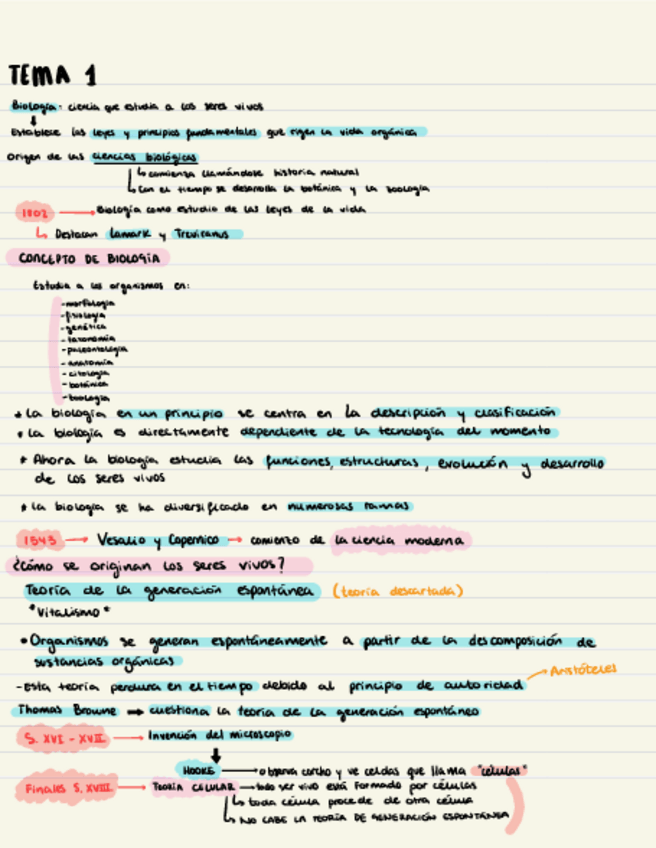 TEMA 1
Biología: ciencia que estudia a los seres vivos
Establece las leyes y principios fundamentales que rigen la vida orgánica
Origen de las ciencias biológicas
comienza llamándose historia natural
con el tiempo se desarrolla la botánica y la zoología
1802 → Biología como estudio de las leyes de la vida
Destacan Lamark y Trevicanus
CONCEPTO DE BIOLOGÍA
Estudia a los organismos en:
-morfología
-fisiología
-genética
-taxonomía
-paleontología
-anatomía
-citología
-botánica
-zoología
* La biología en un principio se centra en la descripción y clasificación
* La biología es directamente dependiente de la tecnología del momento
* Ahora la biología estudia las funciones, estructuras, evolución y desarrollo
de los seres vivos
* la biología se ha diversificado en numerosas ramas
1543 → Vesalio y Copernico → comienzo de la ciencia moderna
¿Cómo se originan los seres vivos?
Teoría de la generación espontánea (teoría descartada)
"Vitalismo"
• Organismos se generan espontáneamente a partir de la descomposición de
sustancias orgánicas
Aristóteles
-Esta teoría perdura en el tiempo debido al principio de autoridad
Thomas Browne → cuestiona la teoría de la generación espontáneo
S. XVI - XVII → Invención del microscopio
HOOKE → observa corcho y ve celdas que llama "células"
Finales S. XVIII → TEORÍA CELULAR → todo ser vivo está formado por células
toda célula procede de otra célula
NO CABE LA TEORÍA DE GENERACIÓN ESPONTÁNEA